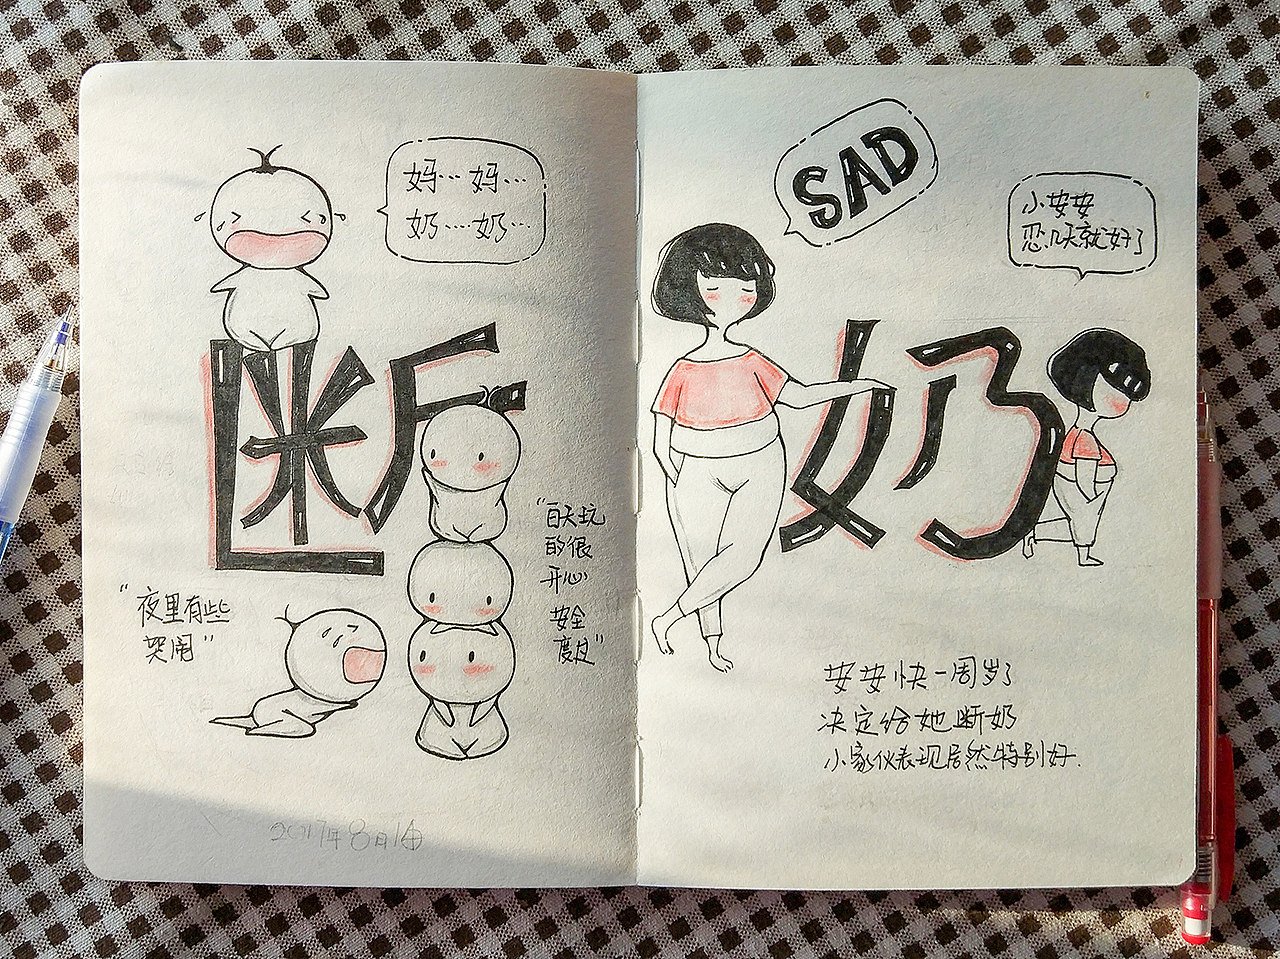 妈…妈…
奶…奶…
断
"夜里有些
哭闹"
"白天玩
的很
开心
安全
度过"
2017年8月1日
SAD
小安安
忍几天就好了
奶
安安快一周岁了
决定给她断奶
小家伙表现居然特别好.